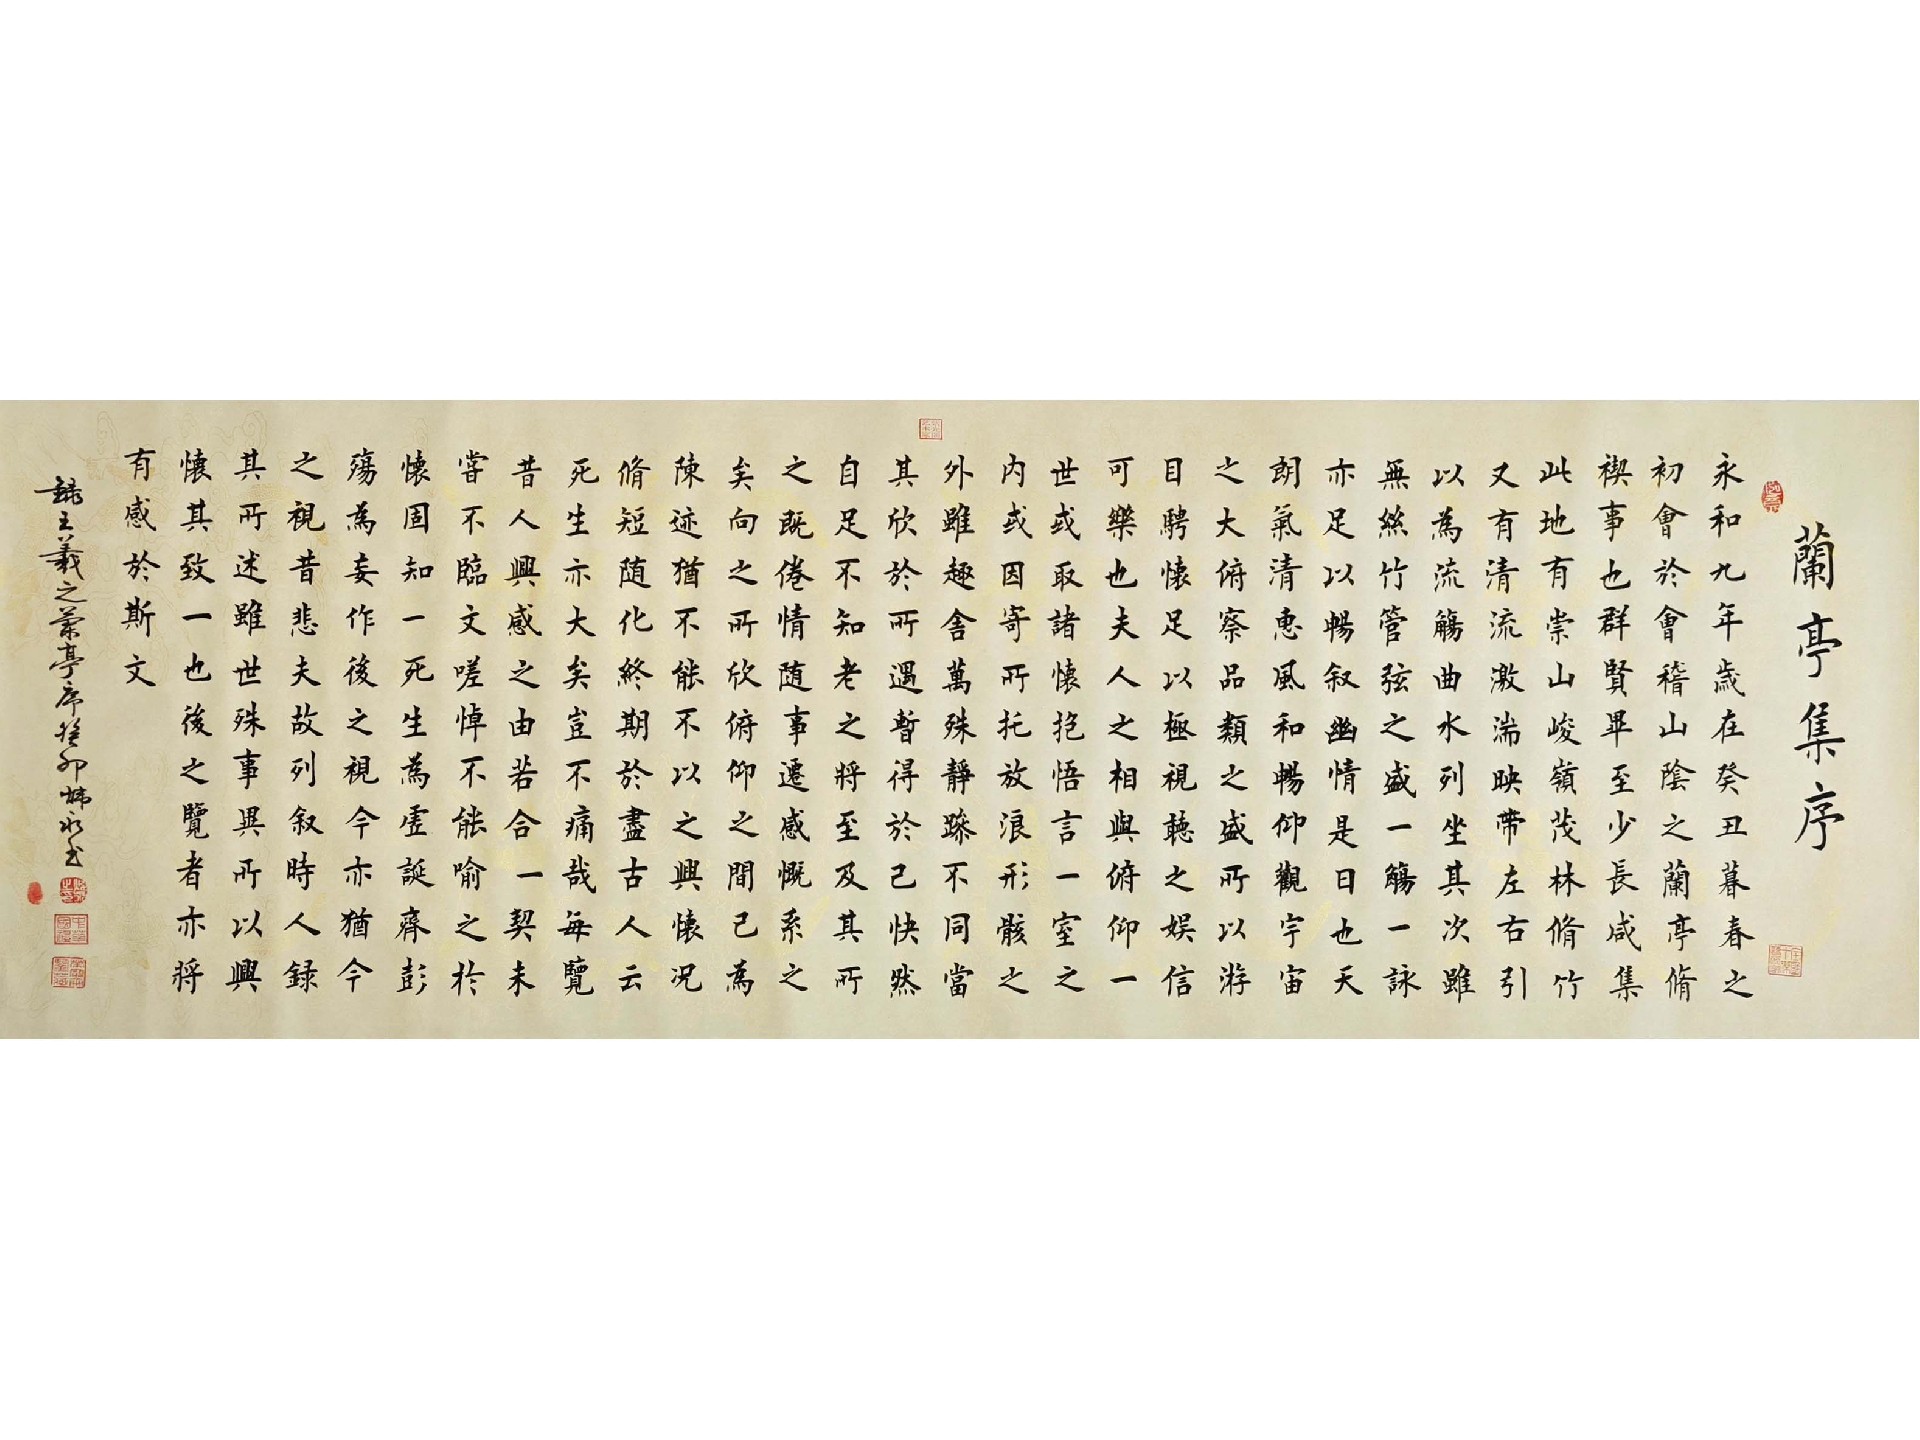 蘭亭集序
永和九年歲在癸丑暮春之
初會於會稽山陰之蘭亭脩
禊事也群賢畢至少長咸集
此地有崇山峻嶺茂林脩竹
又有清流激湍映帶左右引
以為流觴曲水列坐其次雖
無絲竹管弦之盛一觴一詠
亦足以暢叙幽情是日也天
朗氣清惠風和暢仰觀宇宙
之大俯察品類之盛所以游
目騁懐足以極視聽之娱信
可樂也夫人之相與俯仰一
世或取諸懐抱悟言一室之
内或因寄所托放浪形骸之
外雖趣舍萬殊靜躁不同當
其欣於所遇暫得於己快然
自足不知老之將至及其所
之既倦情随事遷感慨系之
矣向之所欣俯仰之間已為
陳迹猶不能不以之興懐况
脩短随化終期於盡古人云
死生亦大矣豈不痛哉每覽
昔人興感之由若合一契未
甞不臨文嗟悼不能喻之於
懐固知一死生為虚誕齊彭
殤為妄作後之視今亦猶今
之視昔悲夫故列叙時人録
其所述雖世殊事異所以興
懐其致一也後之覽者亦將
有感於斯文
錄王羲之蘭亭序癸卯永书